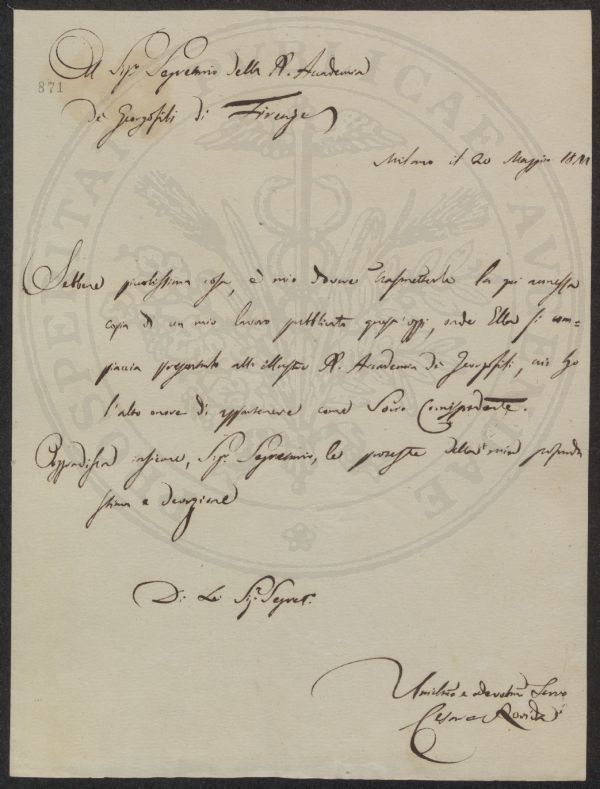 Al Sigr Segretario della R. Accademia
871
de Georgofili di Firenze
Milano il 20 Maggio
Sebbene piccolissima cosa, è mio dovere trasmetterle la qui annessa
copia di un mio lavoro pubblicato quest'oggi, onde Ella si com=
piaccia presentarlo alla illustre R. Accademia de Georgofili, cui ho
l'alto onore di appartenere come Socio Corrispondente.
insieme, Sigr Segretario, le proteste della mia profonda
stima e devozione
Di Lei Sigr Segret.
Umilmo e devotmo Servo
Cesare Rovida
HOSPERITATI PUBLICAE AUGENDAE